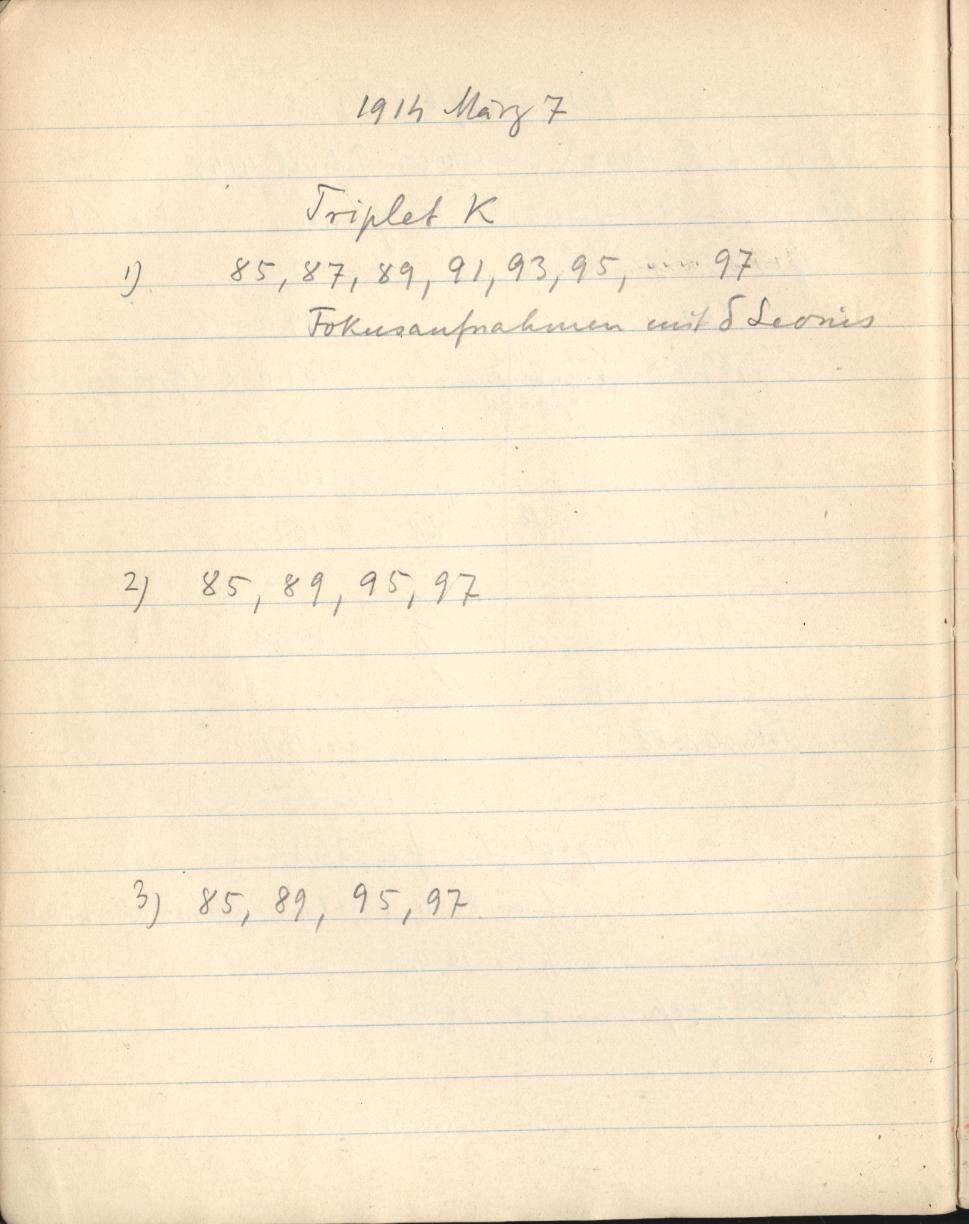 1914 März 7
Triplet K
1) 85, 87, 89, 91, 93, 95, .... 97
Fokusaufnahmen mit δ Leonis
2) 85, 89, 95, 97
3) 85, 89, 95, 97